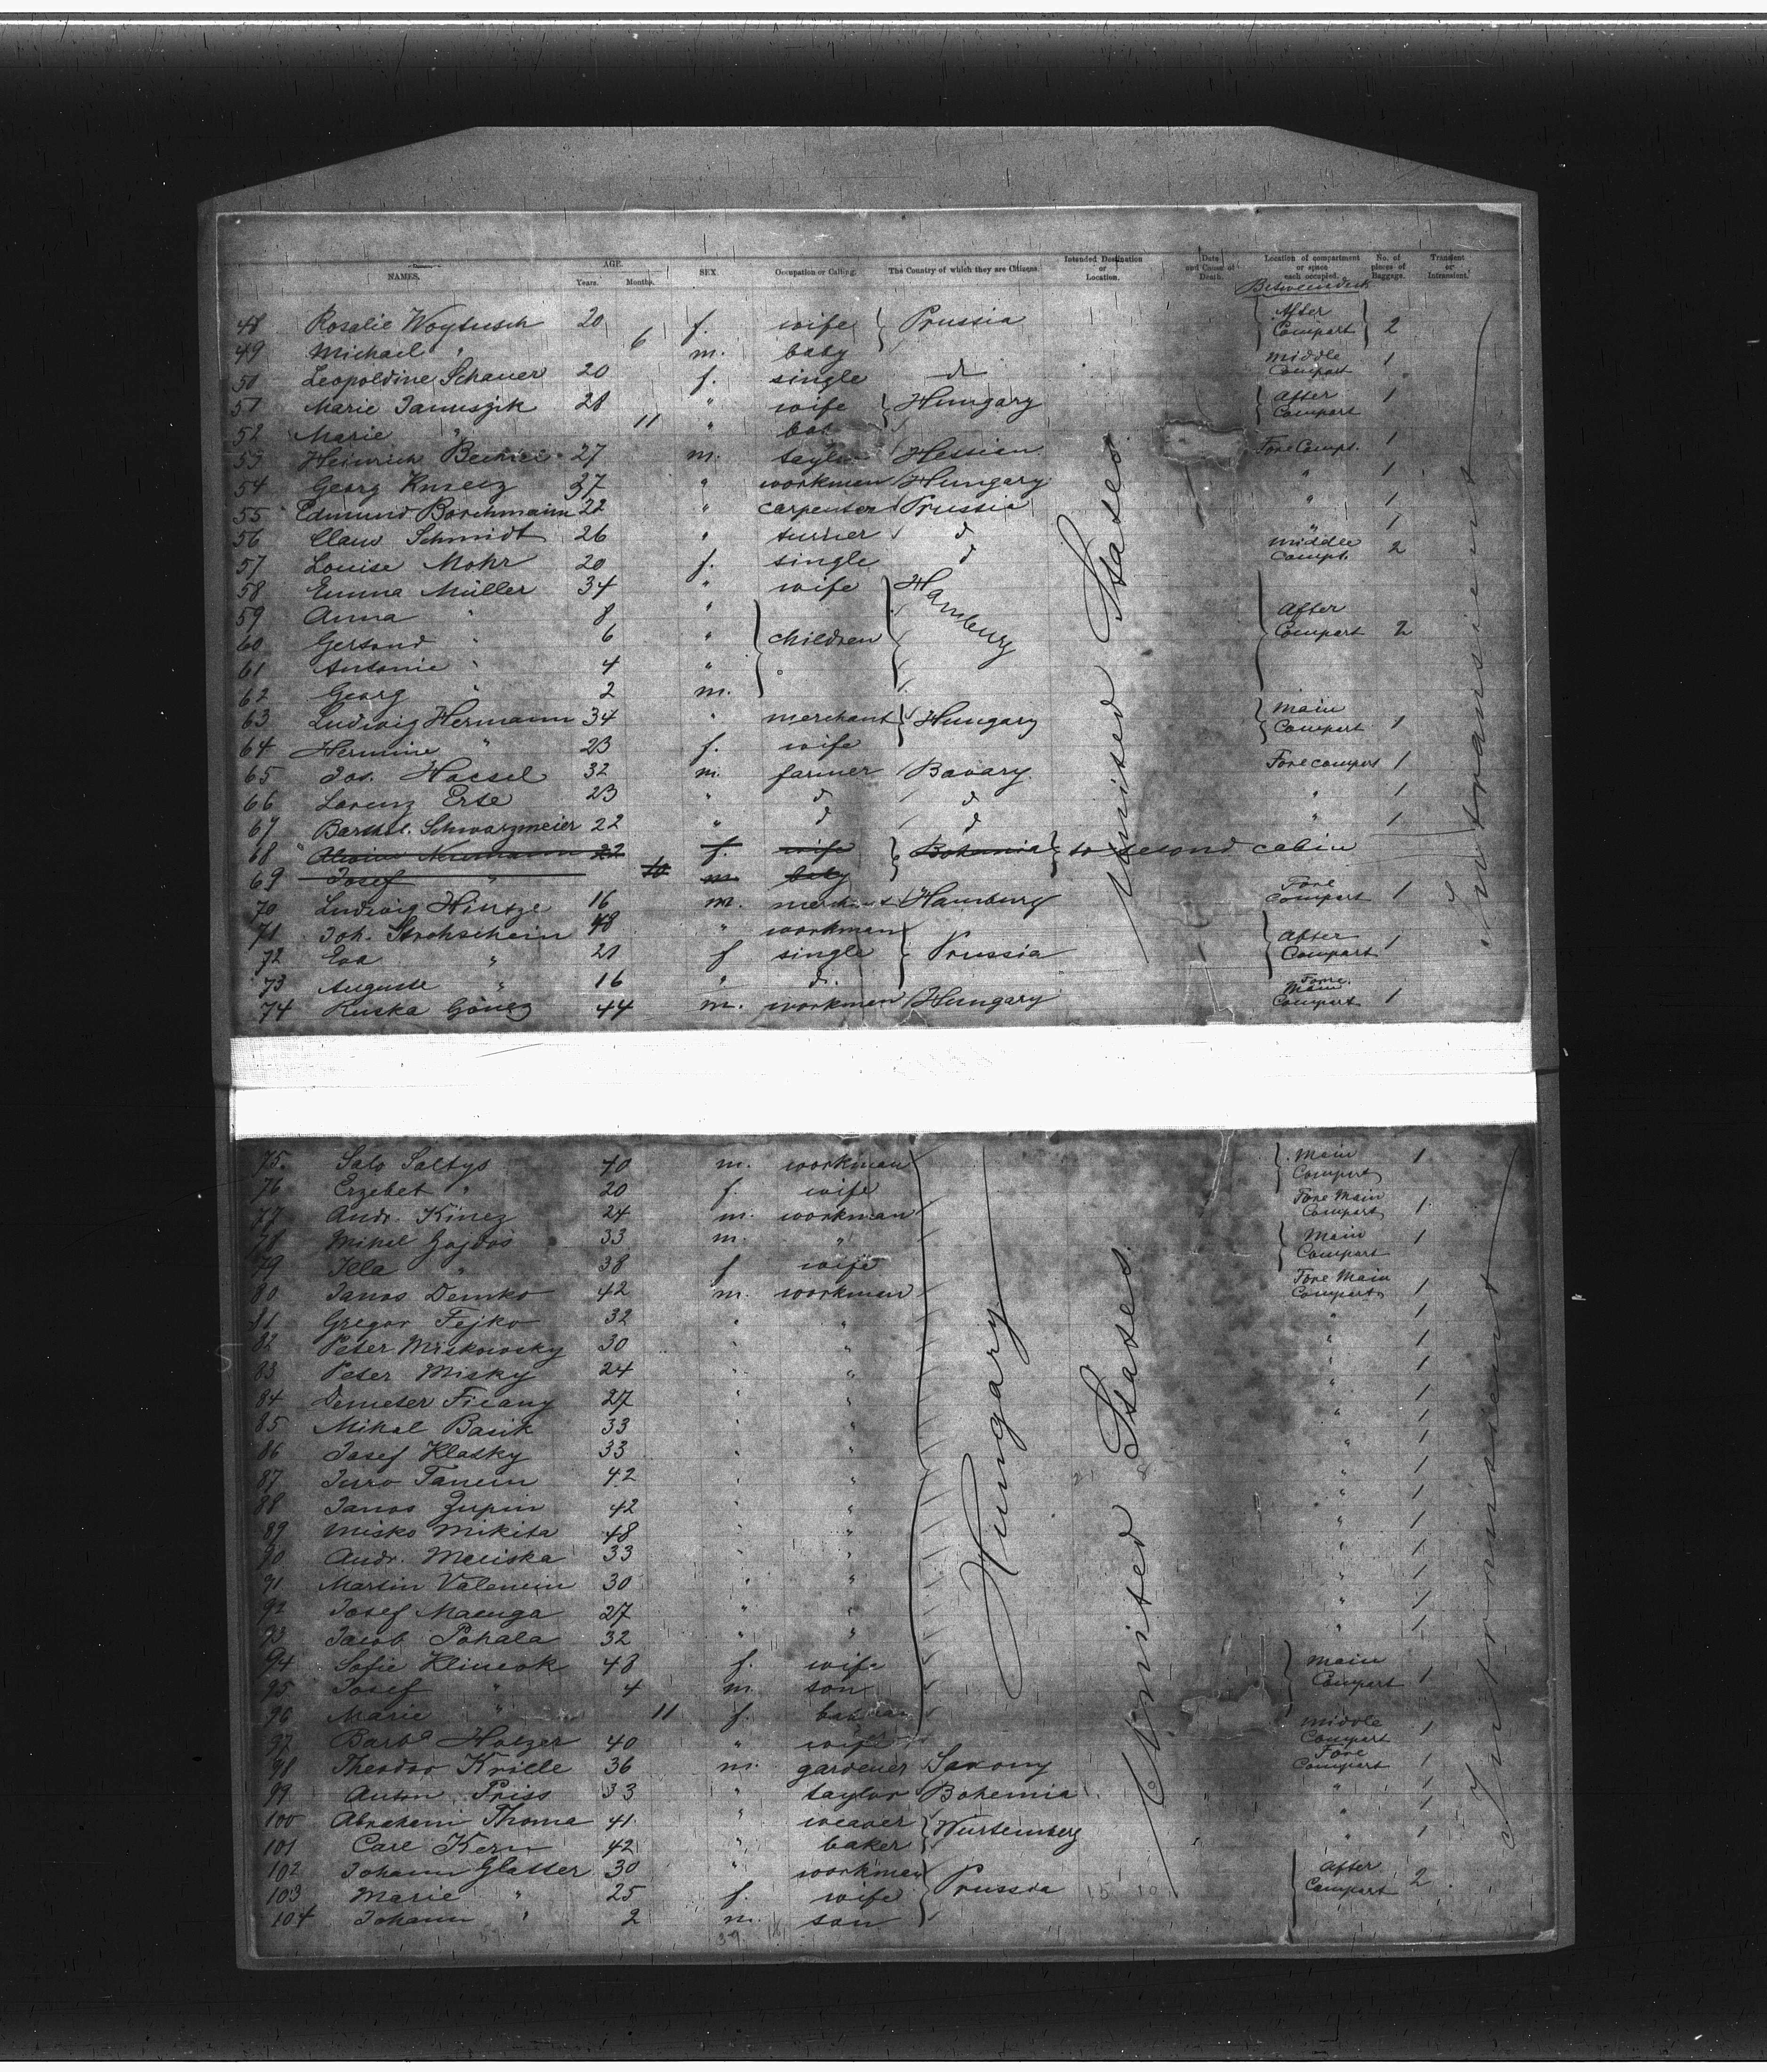 NAMES. AGE. Years. Months. SEX. Occupation or Calling. The Country of which they are Citizens. Intended Destination or Location. Date and Cause of Death. Location of compartment or space each occupied. No. of pieces of Baggage. Transient or Intransient.
Betweendeck
48 Rosalie Woytusch 20 f. wife Prussia After Compart 2
49 Michael " 6 m. baby
50 Leopoldine Schauer 20 f. single d Middle Compart 1
51 Marie Januszik 28 " wife Hungary After Compart 1
52 Marie " 11 "
53 Heinrich 27 m. taylor Hessian Fore Compt. 1
54 Georg 37 " workmen Hungary " 1
55 Edmund Borchmann 22 " carpenter Prussia " 1
56 Claus Schmidt 26 " turner d " 1
57 Louise Mohr 20 f. single d Middle Compt. 2
58 Emma Müller 34 " wife Hamburg
59 Anna " 8 "
60 Gertrud " 6 " children After Compart 2
61 Antonie " 4 "
62 Georg " 2 m.
63 Ludwig Hermann 34 " merchant Hungary Main Compart 1
64 Hermine " 23 f. wife
65 Jos. Haesel 32 m. farmer Bavary. Fore compart 1
66 Lorenz Erte 23 " d d " 1
67 Barthel. Schwarzmeier 22 " d d " 1
68 Neumann 22 f. wife Bohemia to second cabin
69 Josef " 10 m. baby
70 Ludwig Hintze 16 m. merchant Hamburg Fore Compart 1
71 Joh. Strohschein 48 " workman
72 Eva " 21 f single Prussia After Compart 1
73 Auguste " 16 " d.
74 Ruska Göncz 44 m. workmen Hungary Fore Main Compart 1
United States
Intransient
75. Salo Saltys 40 m. workman Main Compart 1
76 Erzebet " 20 f. wife
77 Andr. Kinez 24 m. workman Fore Main Compart 1
78 Mikel Gojdos 33 m. " Main Compart 1
79 Illa " 38 f wife
80 Janos Demko 42 m. workman Fore Main Compart 1
81 Gregor Fejko 32 " " " 1
82 Peter Miskowsky 30 " " " 1
83 Peter Misky 24 " " " 1
84 Demeter Ficany 27 " " " 1
85 Mikal Basik 33 " " " 1
86 Josef Klatky 33 " " " 1
87 Juro Tancin 42 " " " 1
88 Janos Zupin 42 " " " 1
89 Misko Mikita 48 " " " 1
90 Andr. Meliska 33 " " " 1
91 Martin Valencin 30 " " " 1
92 Josef Macuga 27 " " " 1
93 Jacob Pohala 32 " " " 1
94 Sofie Klincok 48 f. wife Main Compart 1
95 Josef " 4 m. son
96 Marie " 11 f.
97 Barbª Holzer 40 " wife Middle Compart 1
98 Theodor Krille 36 m. gardener Saxony Fore Compart 1
99 Anton Priss 33 " taylor Bohemia " 1
100 Abraham Thoma 41 " weaver Wurtemberg " 1
101 Carl Kern 42 " baker " 1
102 Johann Glatter 30 " workmen Prussia After Compart 2
103 Marie " 25 f. wife
104 Johann " 2 m. son
Hungary
United States
Intransient